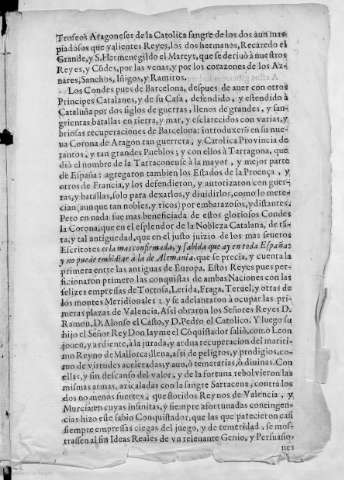 Troſeos Aragoneſes de la Catolica ſangre de los dos aun mas
piadoſos que valientes Reyes, los dos hermanos, Recaredo el
Grande, y S. Hermenegildo el Martyr, que ſe deriuò à nueſtros
Reyes, y Cõdes, por las venas, y por los corazones de los Az-
nares, Sanchos, Iñigos, y Ramiros.
Los Condes pues de Barcelona, deſpues de auer con otros
Principes Catalanes, y de ſu Caſa, defendido, y eſtendido à
Cataluña por dos ſiglos de guerras, llenos de grandes, y ſan-
grientas batallas en tierra, y mar, y eſclarecidos con varias, y
briosas recuperaciones de Barcelona: introduxerõ en ſu nue-
ua Corona de Aragon tan guerrera, y Catolica Prouincia de
tantos, y tan grandes Pueblos; y con ellos à Tarragona, que
diò el nombre de la Tarraconenſe à la mayor, y mejor parte
de Eſpaña: agregaron tambien los Eſtados de la Proença, y
otros de Francia, y los defendieron, y autorizaron con guer-
ras, y batallas, ſolo para dexarlos, y diuidirlos, como lo mere-
cian, aun que tan nobles, y ricos) por embarazos, y diſtantes.
Pero en nada fue mas beneficiada de eſtos glorioſos Condes
la Corona, que en el eſplendor de la Nobleza Catalana, de tã-
ta, y tal antiguedad, que en el juſto juizio de los mas ſeueros
Eſcritores es la mas confirmada, y ſabida que ay en toda Eſpaña;
y no puede embidiar à la de Alemania, que ſe precia, y cuenta la
primera entre las antiguas de Europa. Eſtos Reyes pues per-
ficionaron primero las conquiſtas de ambas Naciones con las
felizes empreſſas de Tortoſa, Lerida, Fraga, Teruel, y otras de
los montes Meridionales, y ſe adelantaron à ocupar las pri-
meras plazas de Valencia. Aſsi obraron los Señores Reyes D.
Ramon, D. Alonſo el Caſto, y D. Pedro el Catolico. Y luego ſu
hijo el Señor Rey Don Iayme el Cõquiſtador ſaliò, como Leon
jouen, y ardiente, à la jurada, y ardua recuperacion del mariti-
mo Reyno de Mallorca llena, aſsi de peligros, y prodigios, co-
mo de virtudes acreditadas, y aun, ò temerarias, ò diuinas. Con
ellas, y ſin deſcanſo del valor, y de la fortuna reboluieron las
miſmas armas, azicaladas con la ſangre Sarracena, contra los
dos no menos fuertes, que floridos Reynos de Valencia, y
Murcia: en cuyas inſinitas, y ſiempre afortunadas contingen-
cias hizo eſte ſabio Conquiſtador, que las que parecieron caſi
ſiempre empreſſas ciegas del juego, y de temeridad, ſe moſ-
traſſen al fin Ideas Reales de vn reinante Genio, y Perſuaſio-